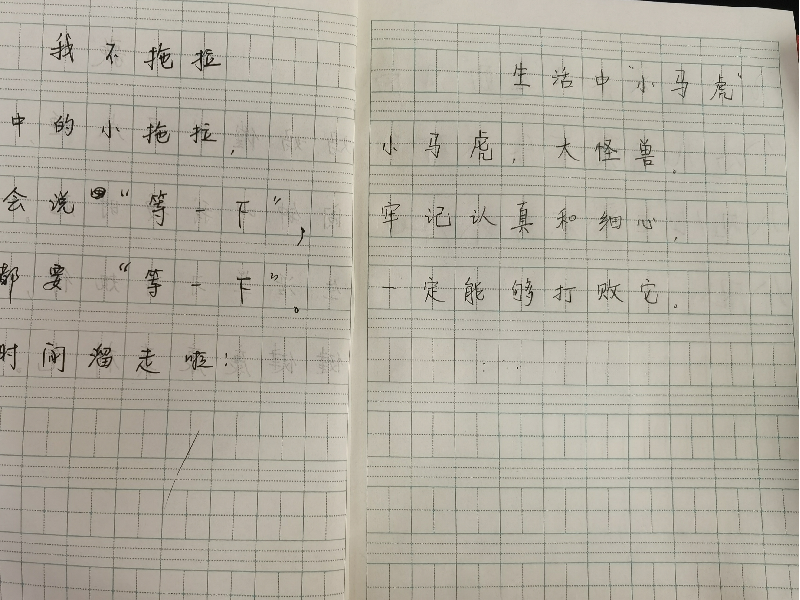 我不拖拉
中的小拖拉,
会说“等一下”,
都要“等一下”。
时间溜走啦!
生活中“小马虎”
小马虎,大怪兽。
牢记认真和细心,
一定能够打败它。